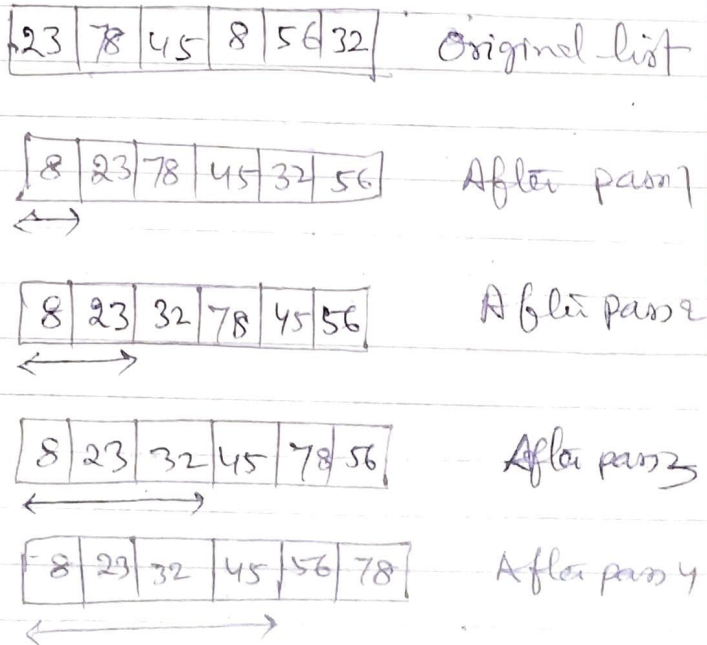 23 78 45 8 56 32 Original list
8 23 78 45 32 56 After pass 1
8 23 32 78 45 56 After pass 2
8 23 32 45 78 56 After pass 3
8 23 32 45 56 78 After pass 4